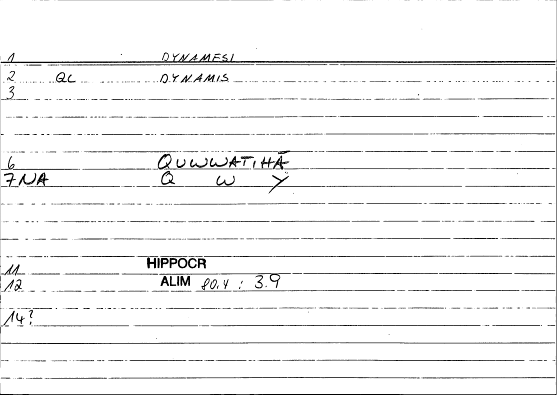 1 DYNAMESI
2 QL DYNAMIS
3
6 QUWWATIHĀ
7 NA Q W Y
11 HIPPOCR
12 ALIM 80.4 : 3.9
14?